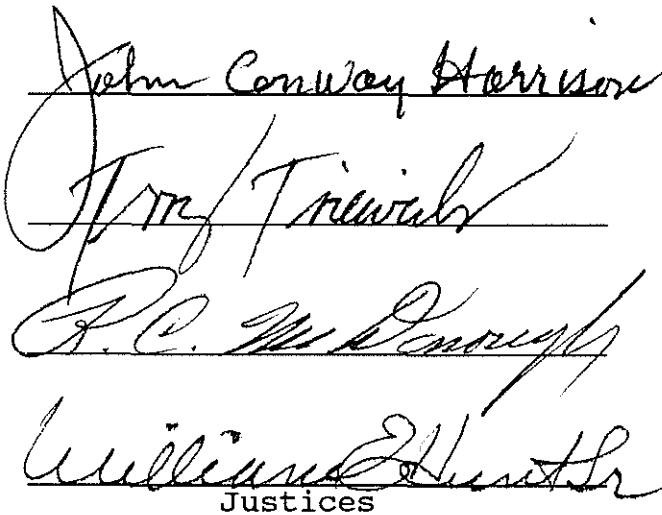 John Conway Harrison
Terry Trieweiler
R. C. McDonough
William E Hunt Sr
Justices